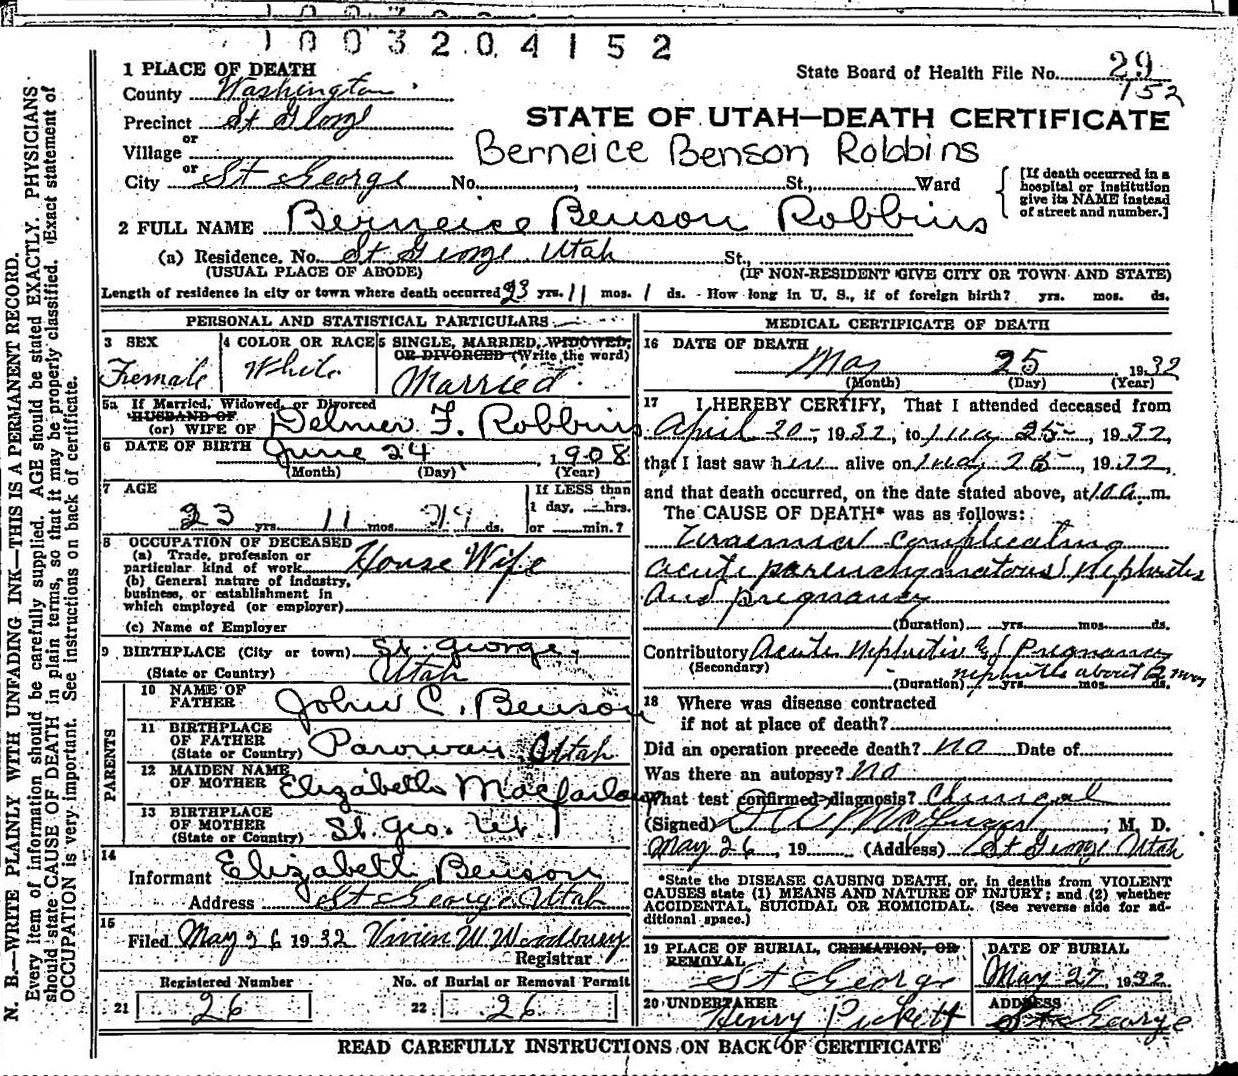 1003204152
1 PLACE OF DEATH
State Board of Health File No. 29
152
County Washington
STATE OF UTAH—DEATH CERTIFICATE
Precinct St George
or
Village
Berneice Benson Robbins
or
City St George No. , St., Ward
[If death occurred in a hospital or institution give its NAME instead of street and number.]
2 FULL NAME Berneice Benson Robbins
(a) Residence. No. St George Utah St.,
(USUAL PLACE OF ABODE) (IF NON-RESIDENT GIVE CITY OR TOWN AND STATE)
Length of residence in city or town where death occurred 23 yrs. 11 mos. 1 ds. - How long in U. S., if of foreign birth? yrs. mos. ds.
PERSONAL AND STATISTICAL PARTICULARS
3 SEX
Female
4 COLOR OR RACE
White
5 SINGLE, MARRIED, WIDOWED,
OR DIVORCED (Write the word)
Married
5a If Married, Widowed, or Divorced
HUSBAND OF
(or) WIFE OF Delmer F. Robbins
6 DATE OF BIRTH June 24, 1908
(Month) (Day) (Year)
7 AGE
23 yrs. 11 mos. ds.
If LESS than
1 day, hrs.
or min.?
8 OCCUPATION OF DECEASED
(a) Trade, profession or
particular kind of work House Wife
(b) General nature of industry,
business, or establishment in
which employed (or employer)
(c) Name of Employer
9 BIRTHPLACE (City or town) St. George,
(State or Country) Utah
PARENTS
10 NAME OF
FATHER John C. Benson
11 BIRTHPLACE
OF FATHER
(State or Country) Parowan, Utah
12 MAIDEN NAME
OF MOTHER Elizabeth Macfarlane
13 BIRTHPLACE
OF MOTHER
(State or Country) St. Geo. Ut
14
Informant Elizabeth Benson
Address St George Utah
15
Filed May 26 1932 Vivien W. Woodbury
Registrar
Registered Number
21 26
No. of Burial or Removal Permit
22 26
MEDICAL CERTIFICATE OF DEATH
16 DATE OF DEATH
May 25, 1932
(Month) (Day) (Year)
17 I HEREBY CERTIFY, That I attended deceased from
April 20, 1932, to May 25, 1932,
that I last saw her alive on May 25, 1932,
and that death occurred, on the date stated above, at 10 a. m.
The CAUSE OF DEATH* was as follows:
Uraemia complicating
acute parenchymatous nephritis
and pregnancy
(Duration) yrs. mos. ds.
Contributory Acute Nephritis of Pregnancy
(Secondary) nephritis about 2 mos
(Duration) yrs. mos. ds.
18 Where was disease contracted
if not at place of death?
Did an operation precede death? no Date of
Was there an autopsy? no
What test confirmed diagnosis? Clinical
(Signed) D A McGregor, M. D.
May 26, 19 (Address) St George Utah
*State the DISEASE CAUSING DEATH, or, in deaths from VIOLENT
CAUSES state (1) MEANS AND NATURE OF INJURY; and (2) whether
ACCIDENTAL, SUICIDAL OR HOMICIDAL. (See reverse side for ad-
ditional space.)
19 PLACE OF BURIAL, CREMATION, OR
REMOVAL
St George
DATE OF BURIAL
May 27, 1932
20 UNDERTAKER
Henry Pickett
ADDRESS
St George
READ CAREFULLY INSTRUCTIONS ON BACK OF CERTIFICATE
N. B.—WRITE PLAINLY WITH UNFADING INK—THIS IS A PERMANENT RECORD.
Every item of information should be carefully supplied. AGE should be stated EXACTLY. PHYSICIANS
should state CAUSE OF DEATH in plain terms, so that it may be properly classified. Exact statement of
OCCUPATION is very important. See instructions on back of certificate.